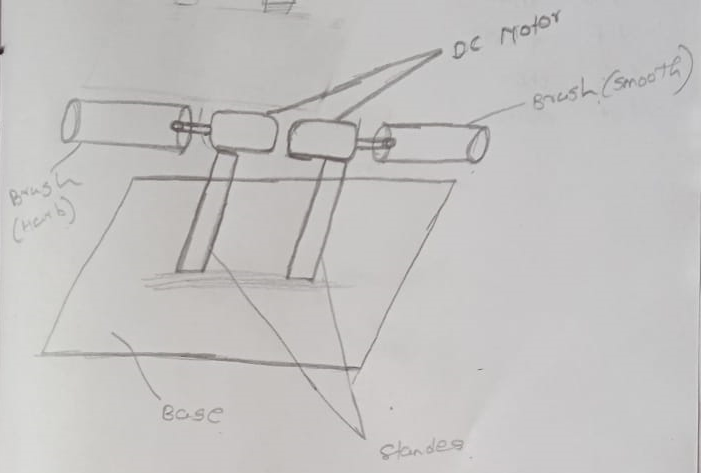 DC Motor
Brush (smooth)
Brush
(Harb)
Base
Standes